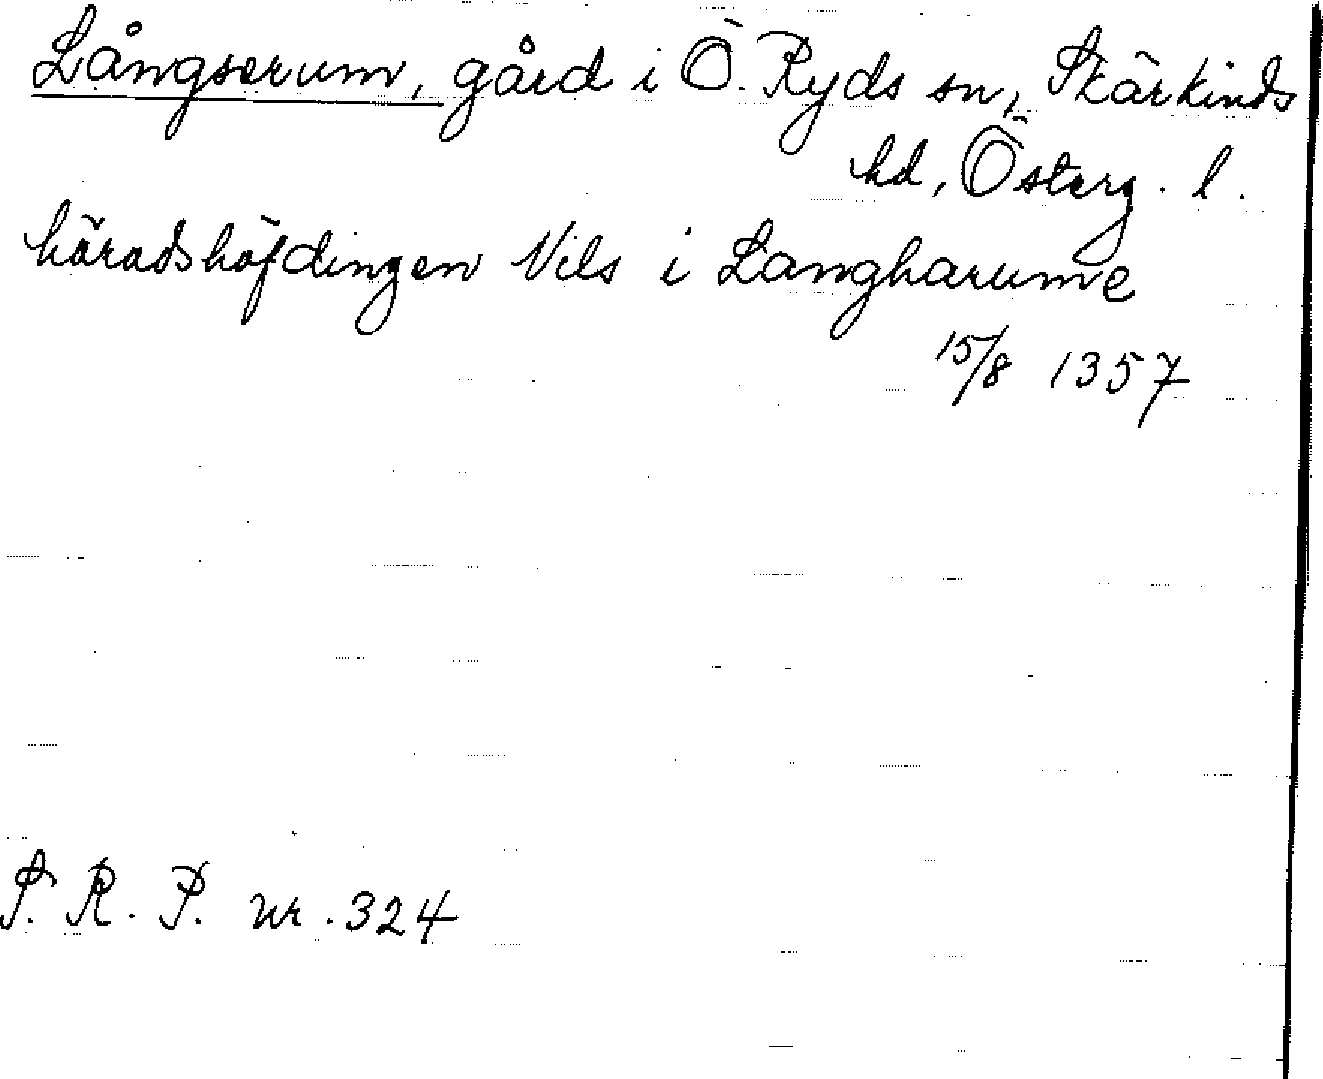 Långserum, gård i Ö. Ryds sn, Skärkinds
hd, Österg. l.
häradshöfdingen Nils i Langharume
15/8 1357
S. R. P. nr. 324